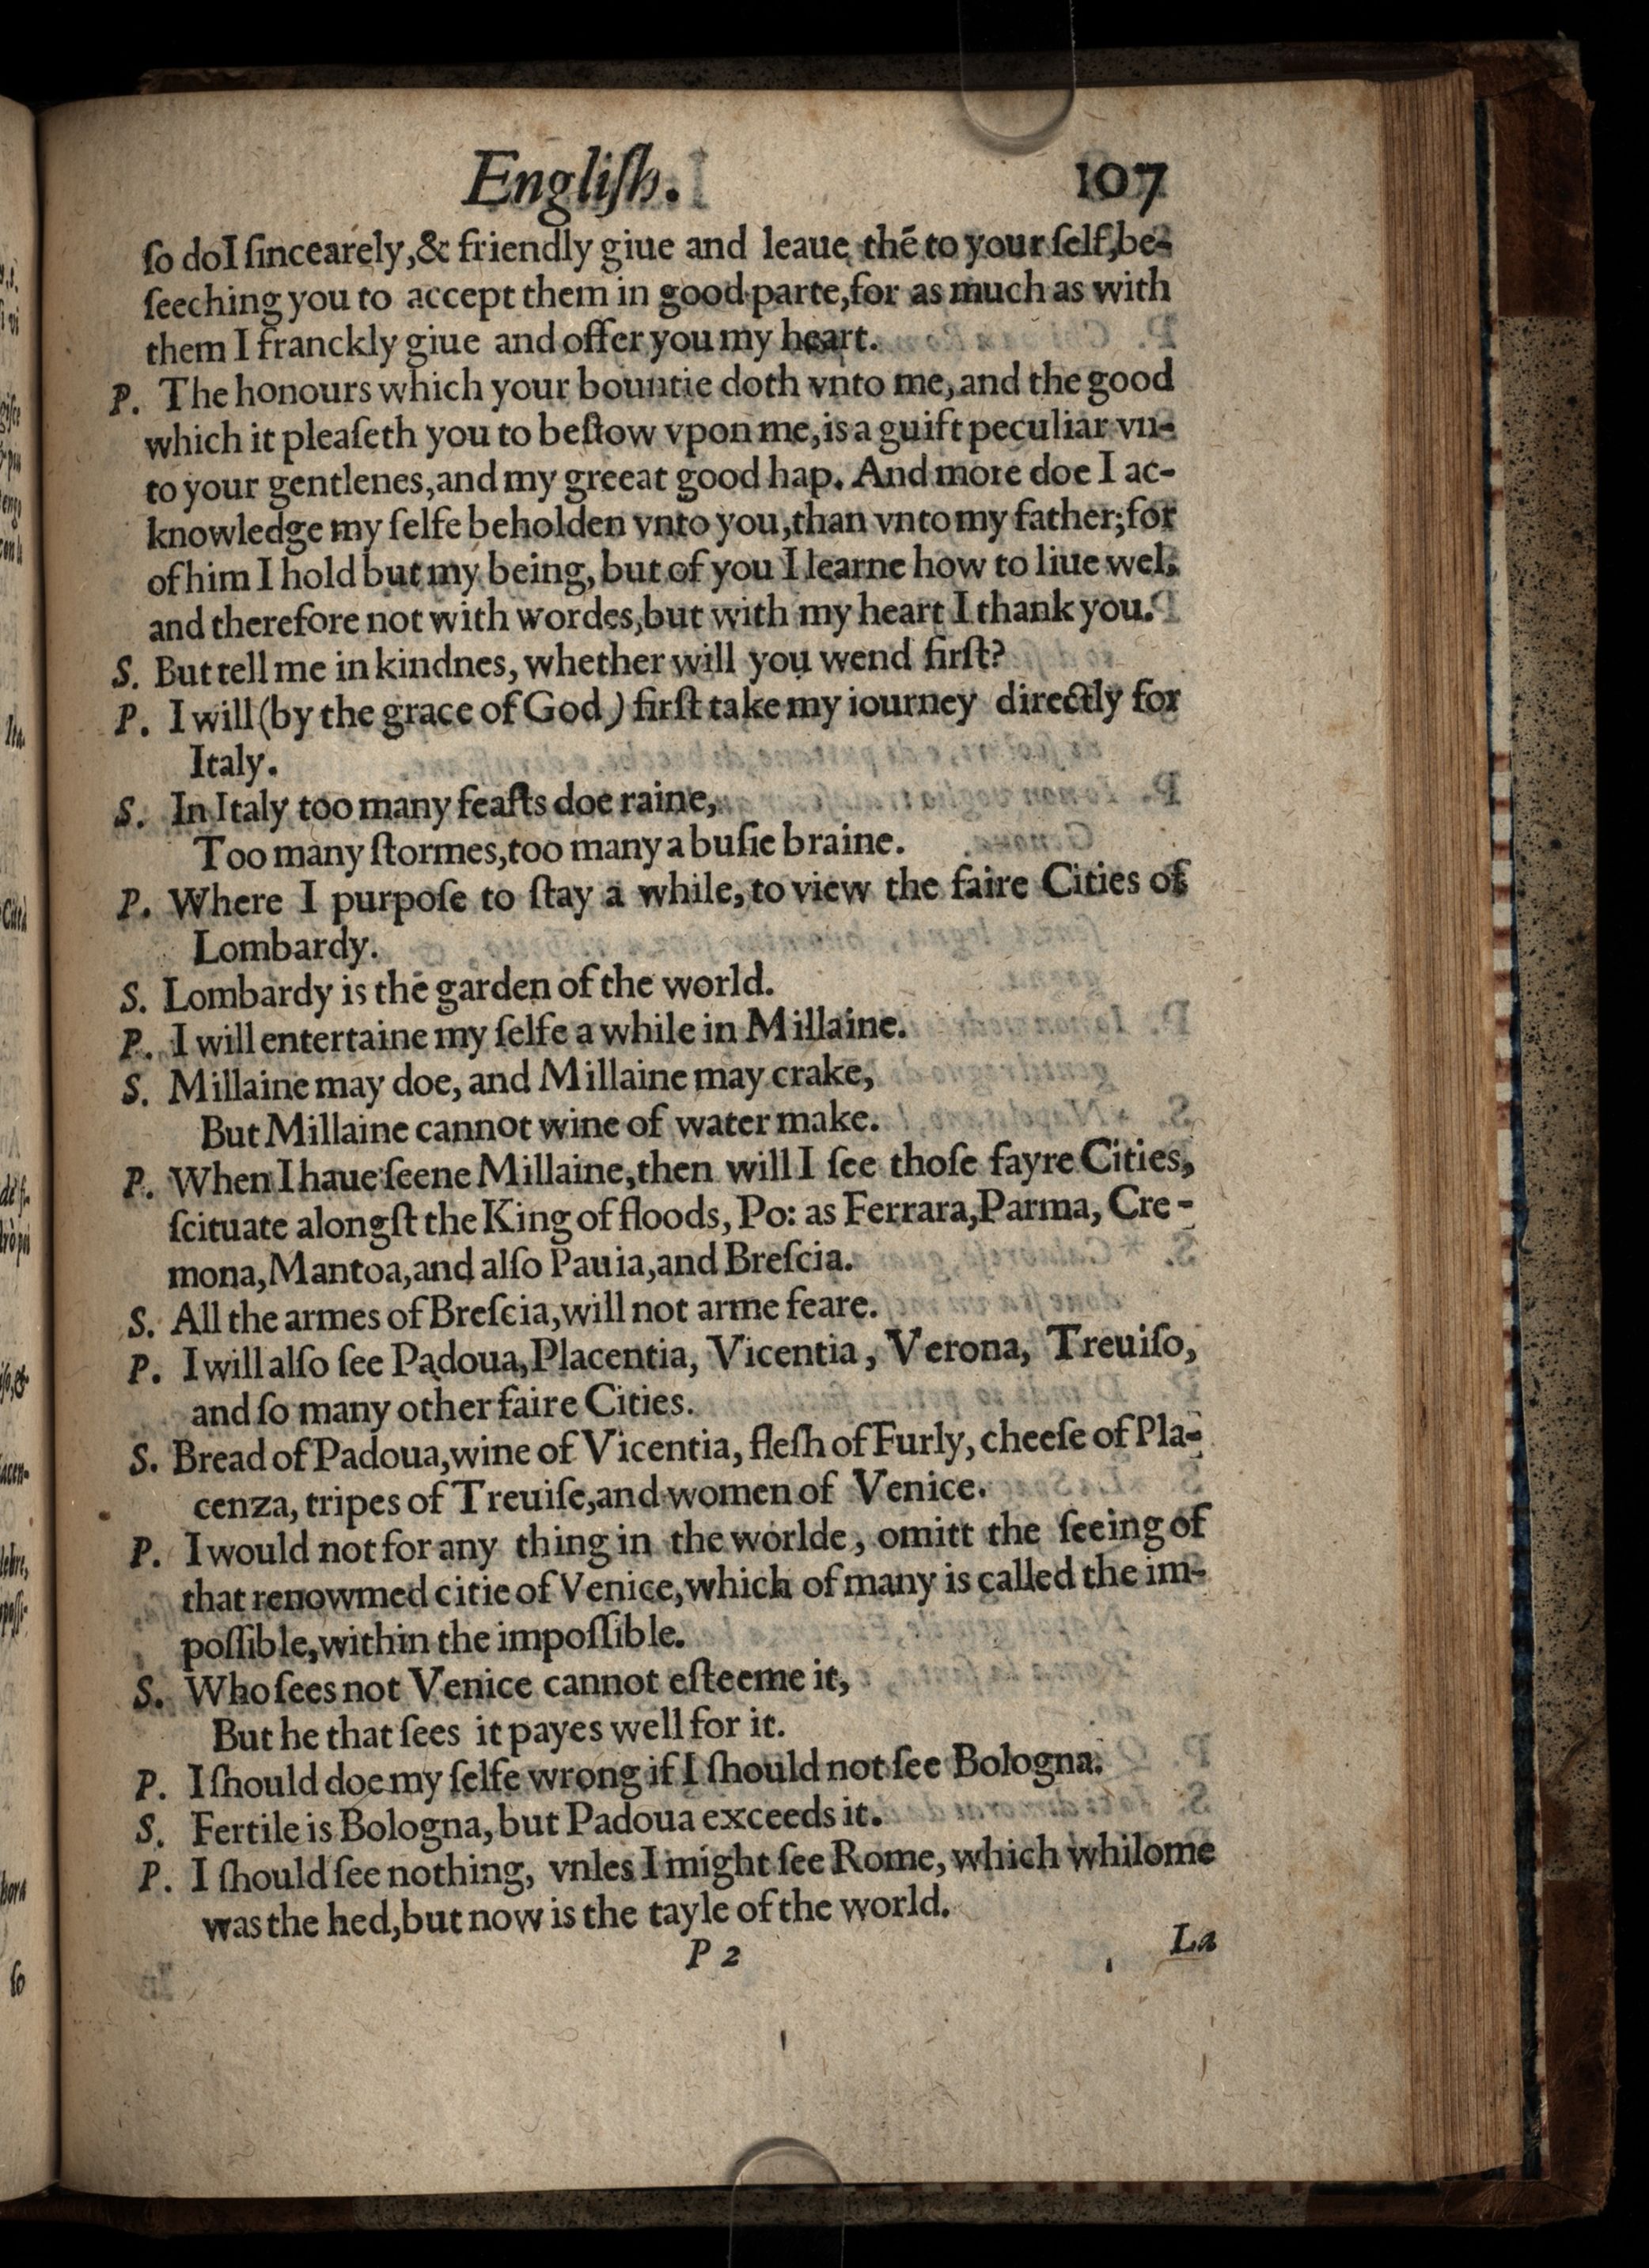 Engliſh. 107
ſo do I ſincearely, & friendly giue and leaue thē to your ſelf, be-
ſeeching you to accept them in good parte, for as much as with
them I franckly giue and offer you my heart.
P. The honours which your bountie doth vnto me, and the good
which it pleaſeth you to beſtow vpon me, is a guift peculiar vn-
to your gentlenes, and my greeat good hap. And more doe I ac-
knowledge my ſelfe beholden vnto you, than vnto my father; for
of him I hold but my being, but of you I learne how to liue wel,
and therefore not with wordes, but with my heart I thank you.
S. But tell me in kindnes, whether will you wend firſt?
P. I will (by the grace of God) firſt take my iourney directly for
Italy.
S. In Italy too many feaſts doe raine,
Too many ſtormes, too many a buſie braine.
P. Where I purpoſe to ſtay a while, to view the faire Cities of
Lombardy.
S. Lombardy is the garden of the world.
P. I will entertaine my ſelfe a while in Millaine.
S. Millaine may doe, and Millaine may crake,
But Millaine cannot wine of water make.
P. When I haue ſeene Millaine, then will I ſee thoſe fayre Cities,
ſcituate alongſt the King of floods, Po: as Ferrara, Parma, Cre-
mona, Mantoa, and alſo Pauia, and Breſcia.
S. All the armes of Breſcia, will not arme feare.
P. I will alſo ſee Padoua, Placentia, Vicentia, Verona, Treuiſo,
and ſo many other faire Cities.
S. Bread of Padoua, wine of Vicentia, fleſh of Furly, cheeſe of Pla-
cenza, tripes of Treuiſe, and women of Venice.
P. I would not for any thing in the worlde, omitt the ſeeing of
that renowmed citie of Venice, which of many is called the im-
poſſible, within the impoſſible.
S. Who ſees not Venice cannot eſteeme it,
But he that ſees it payes well for it.
P. I ſhould doe my ſelfe wrong if I ſhould not ſee Bologna.
S. Fertile is Bologna, but Padoua exceeds it.
P. I ſhould ſee nothing, vnles I might ſee Rome, which whilome
was the hed, but now is the tayle of the world.
P 2 La